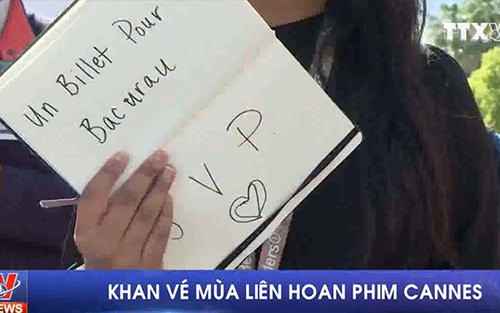 TTXV
Un Billet Pour
Bacurau
V P
NEWS
KHAN VÉ MÙA LIÊN HOAN PHIM CANNES